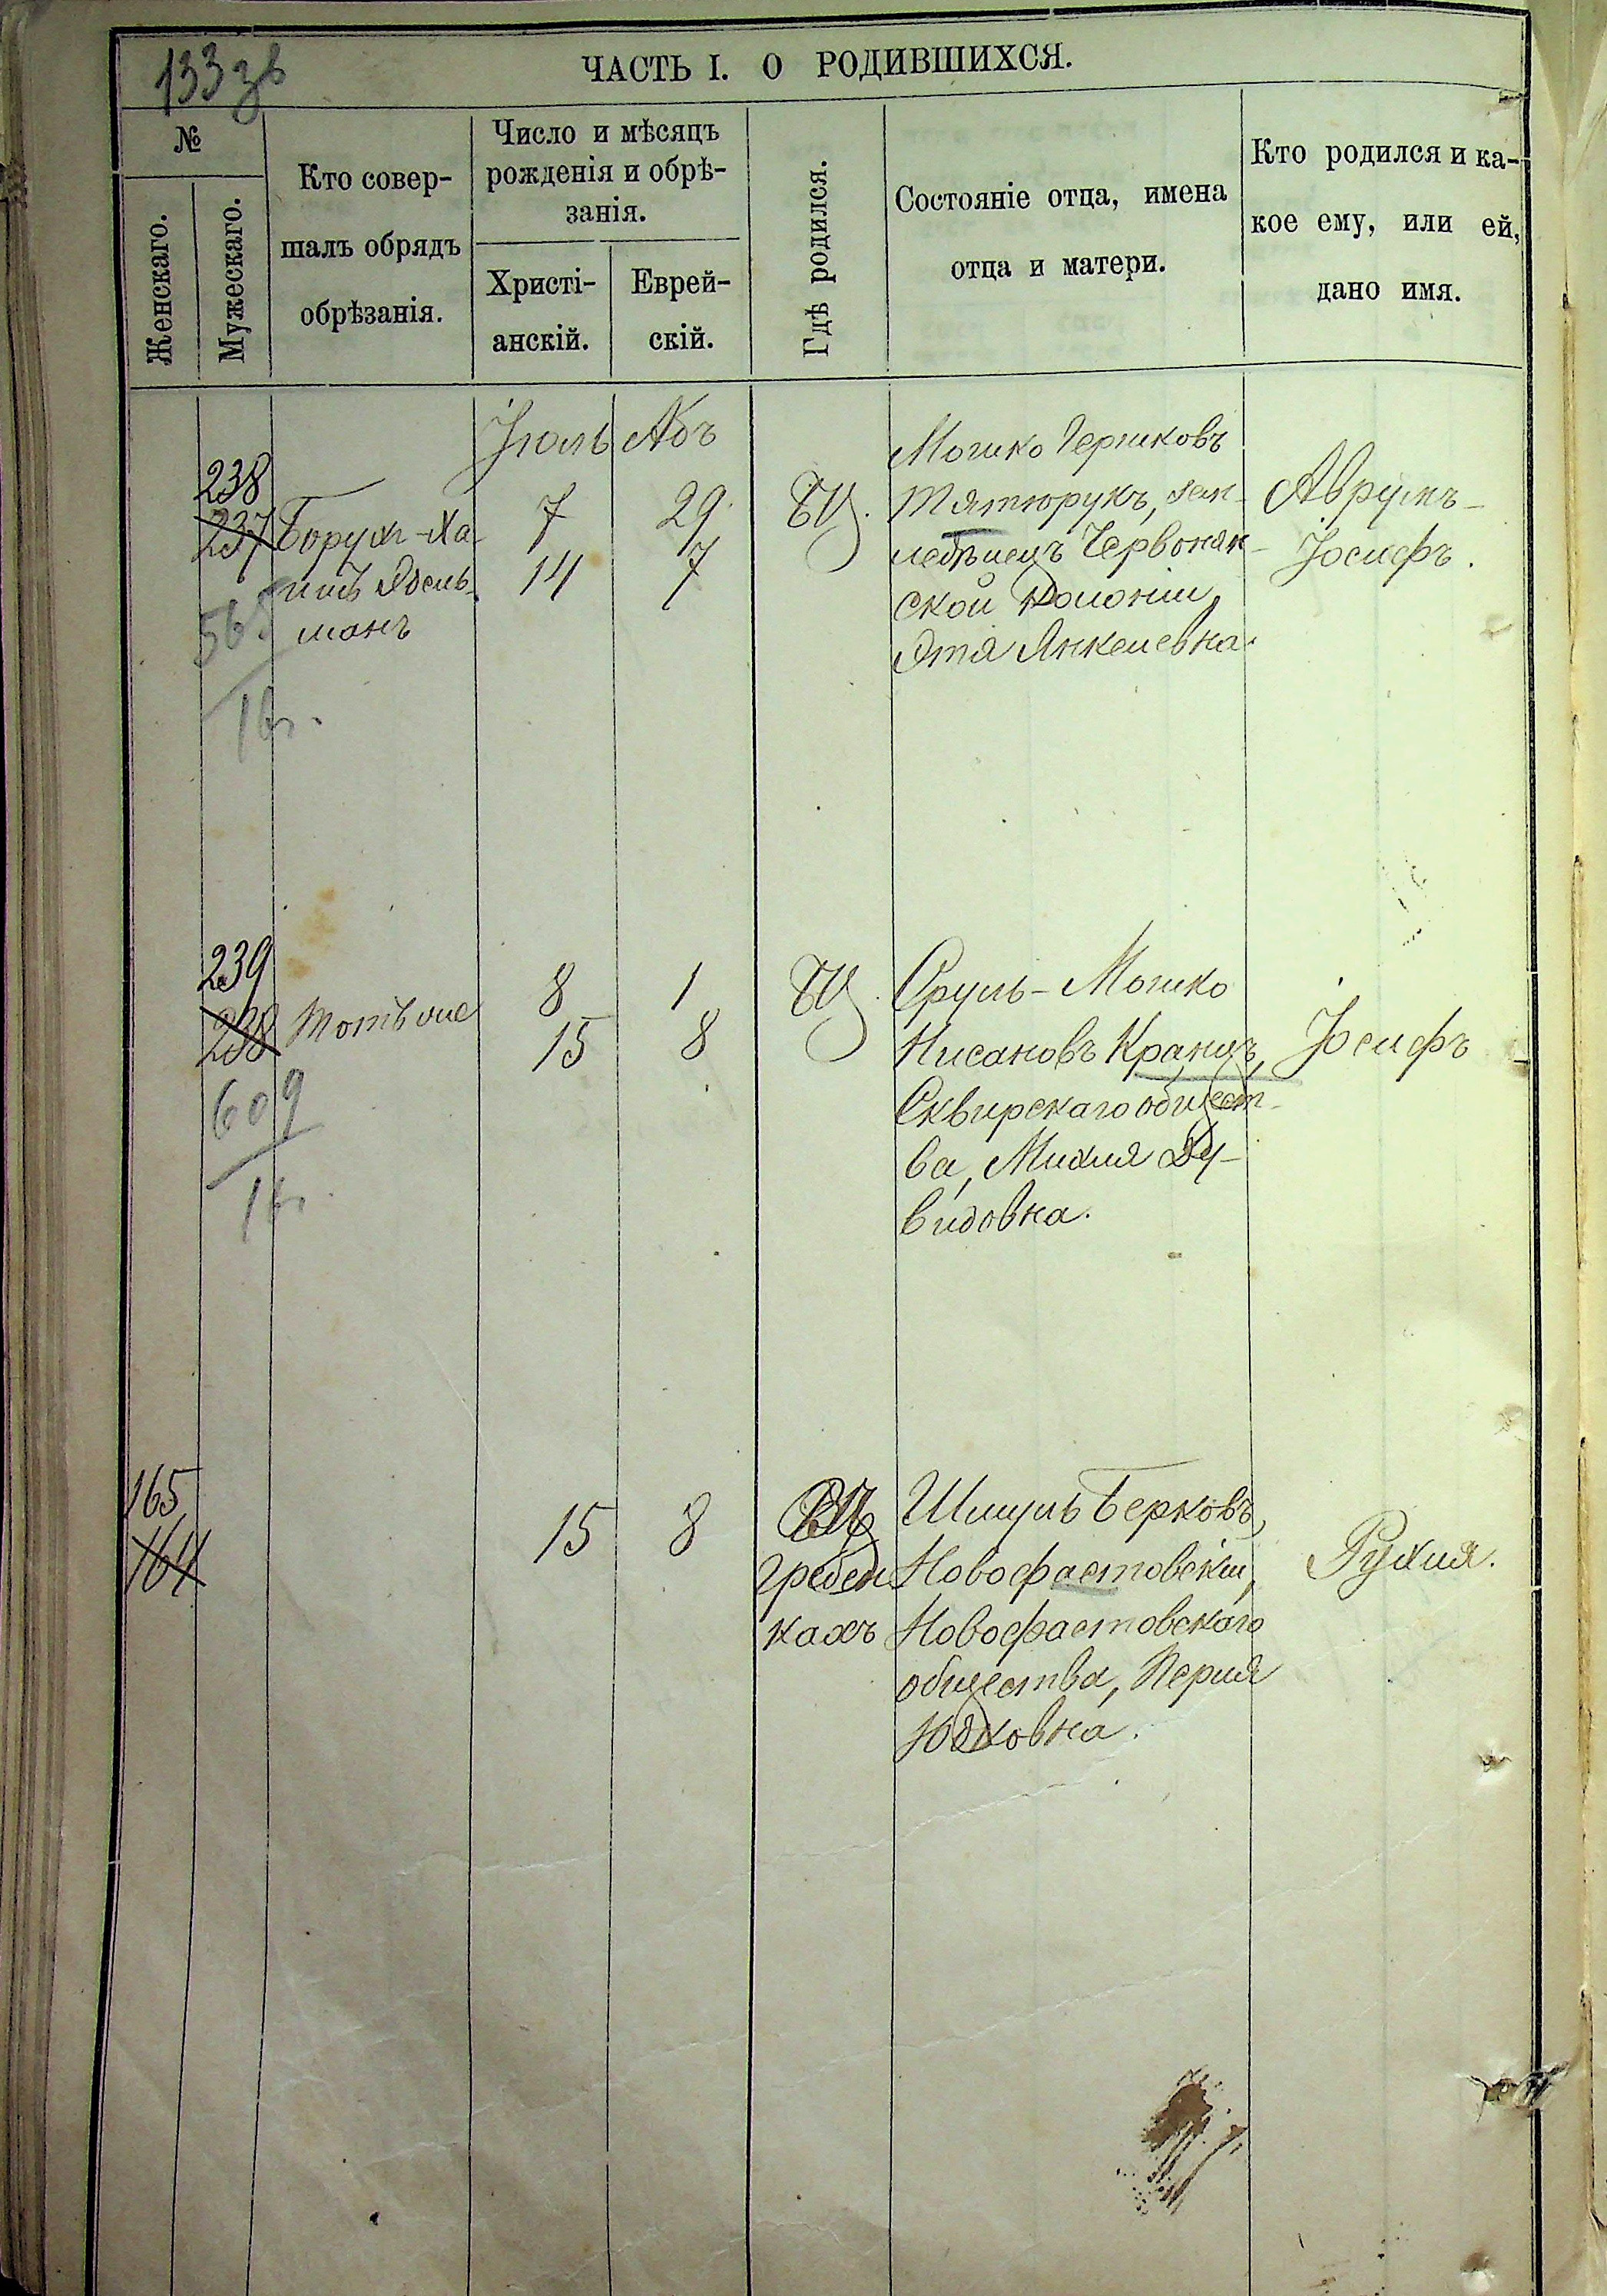 133 зв
ЧАСТЬ I. О РОДИВШИХСЯ.
№
Женскаго.
Мужескаго.
Кто совер-
шалъ обрядъ
обрѣзанія.
Число и мѣсяцъ
рожденія и обрѣ-
занія.
Христі-
анскій.
Еврей-
скій.
Гдѣ родился.
Состояніе отца, имена
отца и матери.
Кто родился и ка-
кое ему, или ей,
дано имя.
Іюль Абъ
238
237
Борухъ-Ха-
имъ Эдель-
манъ
7 29
14 7
БЦ.
Мошко Гершковъ
Тятюрукъ, зем-
ледѣлецъ Червонян-
ской колоніи,
Этя Янкелевна.
Аврумъ-
Іосифъ.
565
1 г.
239
238
Тотъ же
8 1
15 8
БЦ.
Сруль-Мошко
Нисановъ Кранцъ,
Сквирскаго общест-
ва, Михля Ду-
видовна.
Іосифъ
609
1 г.
165
164
15 8
гребен
кахъ
Шмуль Берковъ
Новофастовскій,
Новофастовскаго
общества, Перля
Рухля.